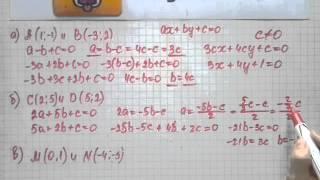 а) A(1;-1) и B(-3;2) ax+by+c=0 c≠0
a-b+c=0 a=b-c=4c-c=3c 3cx+4cy+c=0
-3a+2b+c=0 -3(b-c)+2b+c=0 3x+4y+1=0
-3b+3c+2b+c=0 4c-b=0 b=4c
б) C(2;5) и D(5;2)
2a+5b+c=0 2a=-5b-c
5a+2b+c=0 -21b-3c=0
-21b=3c
в) M(0,1) и N(-4;-5)